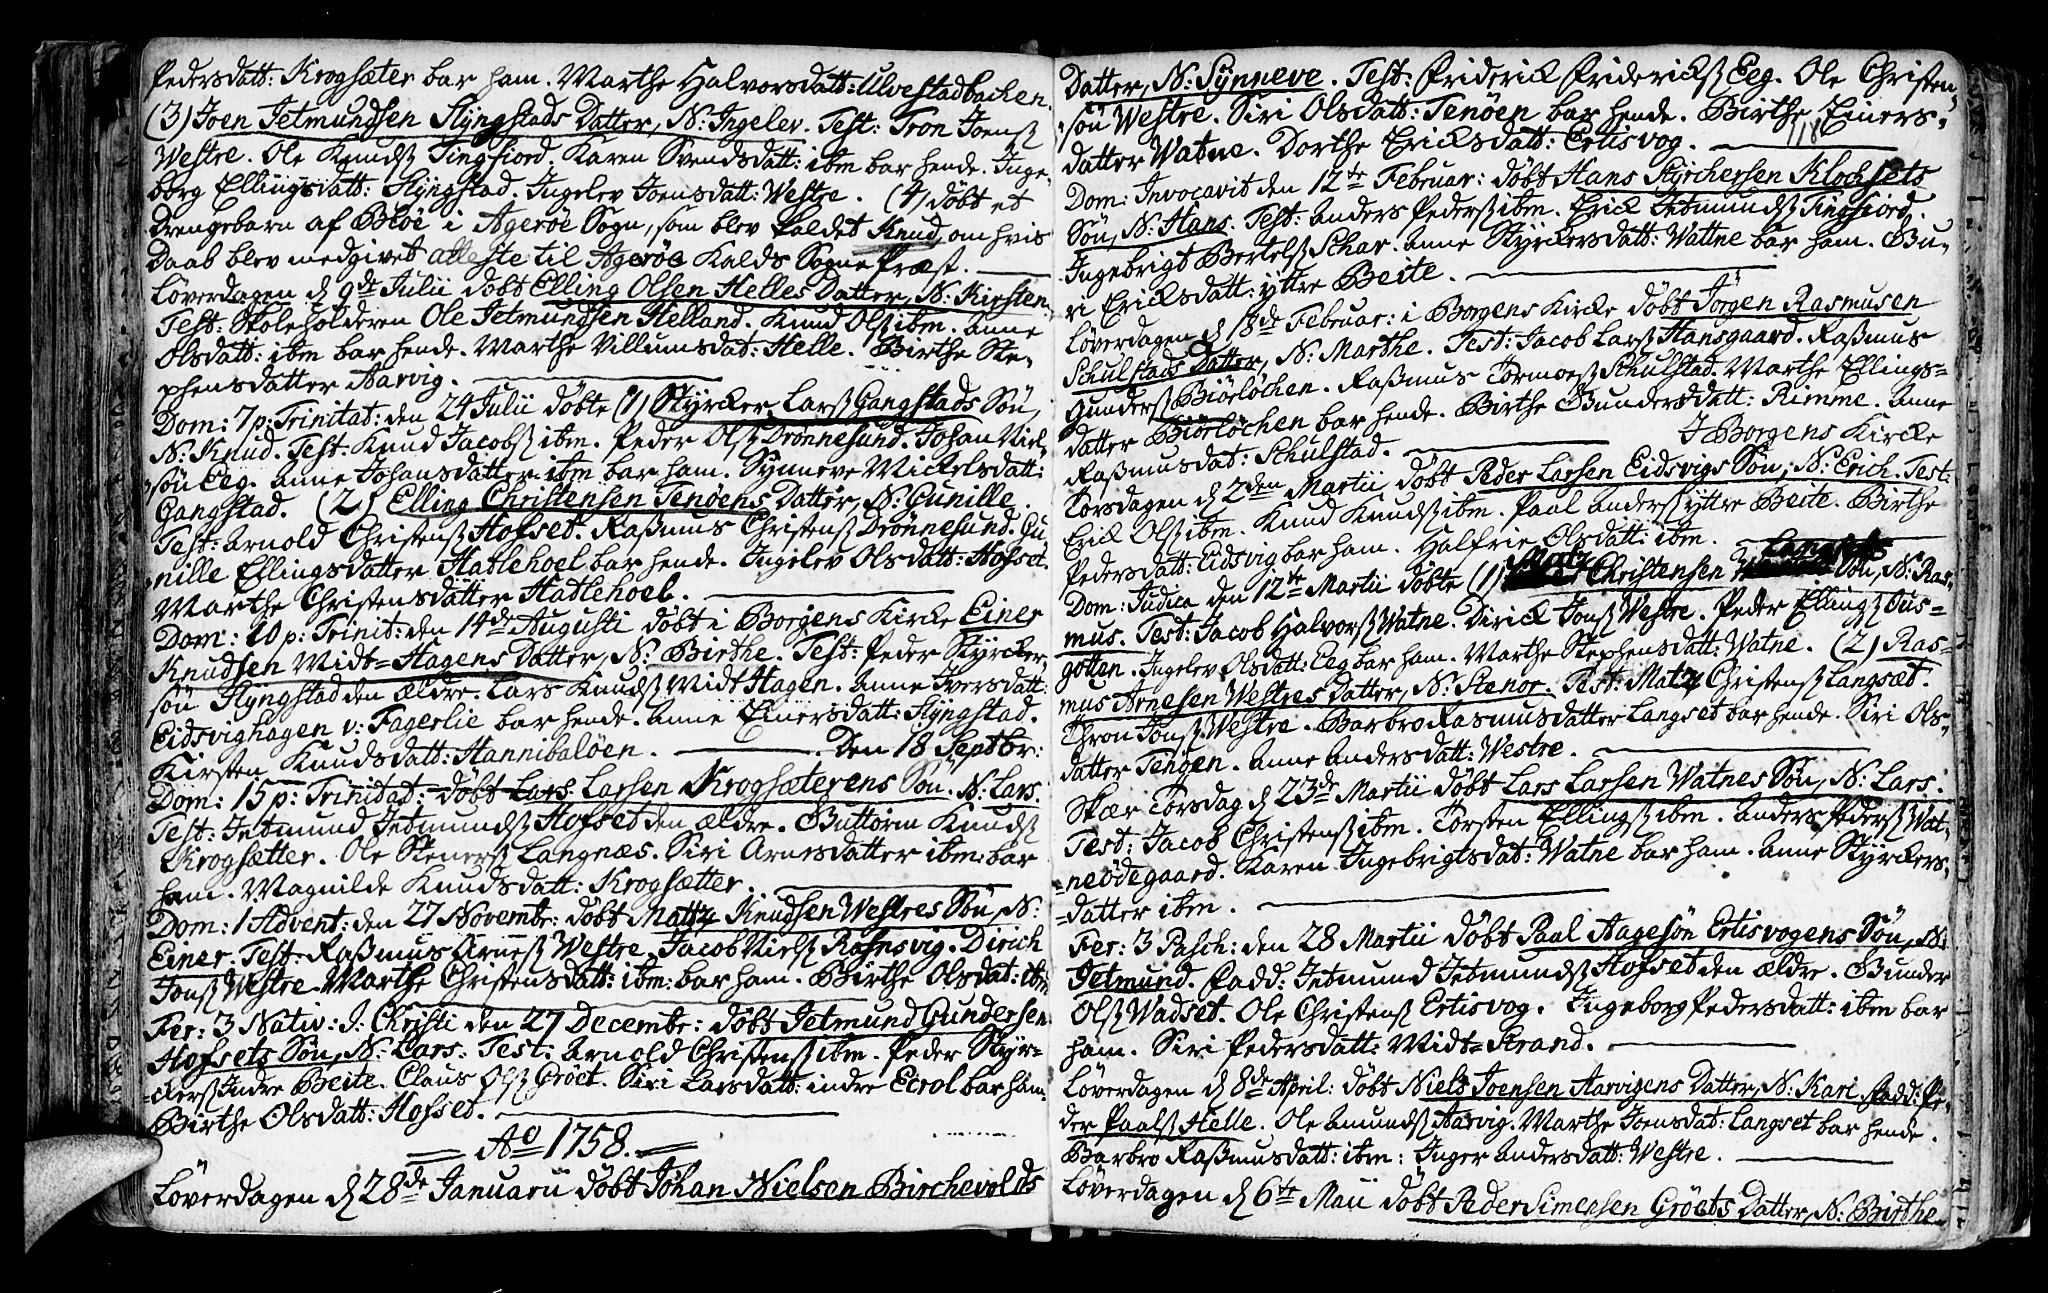 Pedersdatt: Krogsæter bar ham. Marthe Halvorsdatt: Ulvestadbachen.
(3) Joen Jetmundsen Slÿngstads Datter, N: Ingelev. Test: Tron Joensß
Westre. Ole Knudsß Tingfiord. Karen Svendsdatt: ibm bar hende. Inge-
borg Ellingsdatt: Slÿngstad. Ingelev Joensdatt: Westre. (4) döbt et
Drengebarn af Bloe i Ageröe Sogn, som blev kaldet Knud, om hvis
Daab blev medgivet atteste til Ageröe Kalds Sogne Præst.
Löverdagen d 9de Julii döbt Elling Olsen Helles Datter, N: Kirsten.
Test: Skoleholderen Ole Jetmundsen Helland. Knud Olsß ibm. Anne
Olsdatt: ibm bar hende. Marthe Villumsdat: Helle. Birthe Ste-
phensdatter Aarvig.
Dom: 7 p: Trinitat: den 24 Julii döbte (1) Stÿrcker Larsß Gangstads Sön,
N: Knud. Test: Knud Jacobsß ibm. Peder Olsß Drönnesund. Johan Niel-
sön Eeg. Anne Johansdatter ibm bar ham. Synneve Mickelsdatt:
Gangstad. (2) Elling Christensen Tenöens Datter, N: Gunille.
Test: Arnold Christensß Hofset. Rasmus Christensß Drönnesund. Gu-
nille Ellingsdatter Hatlehoel bar hende. Ingelev Olsdatt: Hofset.
Marthe Christensdatter Hatlehoel.
Dom: 10 p: Trinit: den 14de Augusti döbt i Borgens Kirke Einer
Knudsen Midt-Hagens Datter, N: Birthe. Test: Peder Stÿrcker-
sön Slÿngstad den ældre. Lars Knudsß Midt Hagen. Anne Iversdatt:
Eidsvighagen v: Fagerlie bar hende. Anne Einersdatt: Slÿngstad.
Kirsten Knudsdatt: Hannibalöen. Den 18 Septbr:
Dom: 15 p: Trinitat: döbt Lars Larsen Krogsæterens Sön. N: Lars.
Test: Jetmund Jetmundsß Hofset den ældre. Guttorm Knudsß
Krogsætter. Ole Stenersß Langnæs. Siri Arnesdatter ibm: bar
ham. Magnilde Knudsdatt: Krogsætter.
Dom: 1 Advent: den 27 Novembr: döbt Mattz Knudsen Westres Sön, N:
Einer. Test: Rasmus Arnesß Westre. Jacob Nielsß Rafnsvig. Dirich
Jonsß Westre. Marthe Christensdatt: ibm: bar ham. Birthe Olsdat: ibm
Fer: 3 Nativ: J: Christi den 27 Decembr: döbt Jetmund Gundersen
Hofsets Sön, N: Lars. Test: Arnold Christensß ibm. Peder Stÿr-
ckersß Indre Beite. Claus Olsß Gröet. Siri Larsdatt: indre Ecrol bar ham.
Birthe Olsdatt: Hofset.
Ao 1758.
Löverdagen d 28de Januarii döbt Johan Nielsen Birchevolds
Datter, N: Synneve. Test: Friderick Fridericksß Eeg. Ole Christen-
sön Westre. Siri Olsdatt: Tenöen bar hende. Birthe Einers-
datter Watne. Dorthe Ericksdatt: Ertisvog.
118
Dom: Invocavit den 12te Februar: döbt Hans Stÿrchersen Klochsets
Sön, N: Hans. Test: Anders Pedersß ibm. Erick Jetmundsß Tingfiord.
Ingebrigt Bertelsß Schar. Anne Stÿrckersdatt: Wattne bar ham. Gu-
ri Ericksdatt: ÿttre Beite.
Löverdagen d 18de Februar: i Borgens Kircke döbt Jörgen Rasmusen
Schulstads Datter, N: Marthe. Test: Jacob Larsß Hansgaard. Rasmus
Gundersß Biörlöchen. Rasmus Tormoesß Schulstad. Marthe Ellings-
datter Biörlöchen bar hende. Birthe Gundersdatt: Rimme. Anne
Rasmusdat: Schulstad. I Borgens Kircke
Torsdagen d 2den Martii döbt Peder Larsen Eidsvigs Sön, N: Erich. Test:
Erick Olsß ibm. Knud Knudsß ibm. Paal Andersß ÿttre Beite. Birthe
Pedersdatt: Eidsvig bar ham. Halfrie Olsdatt: ibm.
Dom: Judica den 12te Martii döbte (1) Matz Christensen Langsets Sön, N: Ras-
mus. Test: Jacob Halvorsß Watne. Dirick Jonsß Westre. Peder Ellingsß Ous-
gotten. Ingelev Olsdatt: Eeg bar ham. Marthe Stephensdatt: Watne. (2) Ras-
mus Arnesen Westres Datter, N: Stenor. Test: Matz Christensß Langsæt.
Thron Jonsß Westre. Barbro Rasmusdatter Langset bar hende. Siri Ols-
datter Tenöen. Anne Andersdatt: Westre.
Skær Torsdag d 23de Martii döbt Lars Larsen Watnes Sön, N: Lars.
Test: Jacob Christensß ibm. Torsten Ellingsß ibm. Anders Pedersß Wat-
neödegaard. Karen Ingebrigtsdat: Watne bar ham. Anne Stÿrckers-
datter ibm.
Fer: 3 Pasch: den 28 Martii döbt Paal Aagesön Ertisvogens Sön, N:
Jetmund. Fadd: Jetmund Jetmundsß Hofset den ældre. Gunder
Olsß Wadset. Ole Christensß Ertisvog. Ingeborg Pedersdatt: ibm bar
ham. Siri Pedersdatt: Midt-Strand.
Löverdagen d 8de April: döbt Niels Joensen Aarvigens Datter, N: Kari. Fadd: Pe-
der Paalsß Helle. Ole Amundsß Aarvig. Marthe Joensdat: Langset bar hende.
Barbro Rasmusdatt: ibm: Inger Andersdatt: Westre.
Löverdagen d 6te Maii döbt Peder Simensen Gröets Datter, N: Birthe.